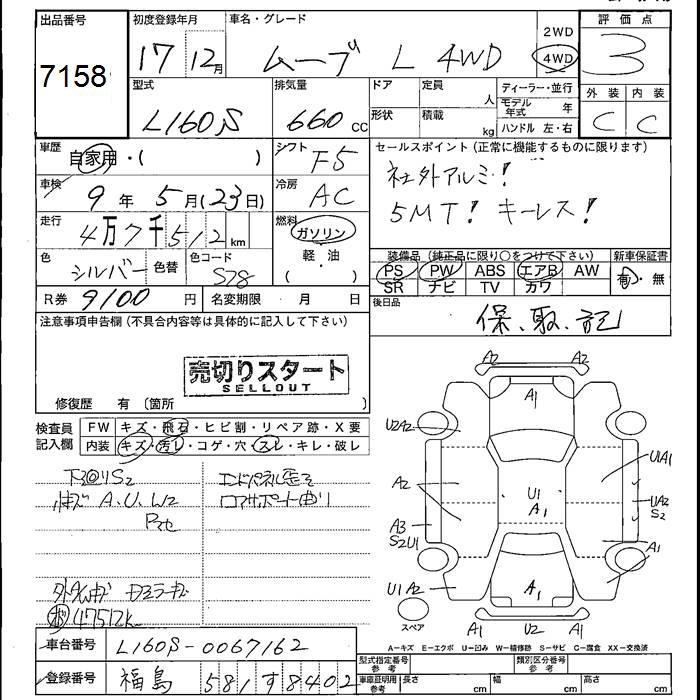 出品番号 初度登録年月 車名・グレード 2WD 評価点
7158 17 12月 ムーブ L 4WD 4WD 3
型式 排気量 ドア 定員 人 ディーラー・並行 外装 内装
L160S 660 CC 形状 積載 kg モデル年式 年 C C
ハンドル 左・右
車歴 自家用・( ) シフト F5 セールスポイント(正常に機能するものに限ります)
車検 9年 5月(23日) 冷房 AC 社外アルミ!
走行 4万7千512km 燃料 ガソリン 5MT! キーレス!
軽・油
色 シルバー 色替 色コード S28 装備品(純正品に限り○をつけて下さい) 新車保証書
PS PW ABS エアB AW 有・無
R券 9100円 名変期限 月 日 SR ナビ TV カワ
後日品 保、取、記
注意事項申告欄(不具合内容等は具体的に記入して下さい)
売切りスタート
SELLOUT
修復歴 有(箇所 )
検査員記入欄 FW キズ・飛石・ヒビ割・リペア跡・X要
内装 キズ・汚レ・コゲ・穴・スレ・キレ・破レ
A2 A2
A1
U2A2
U1A1
A2
U1
A1
UA2
S2
A3
S2U1
A1
U1A2
A1
スペア A1 U2 A1
A.U.W2
コアサポート曲り
47512k
車台番号 L160S-0067162
A-キズ E-エクボ U-凹み W-補修跡 S-サビ C-腐食 XX-交換済
登録番号 福島 581 す 8402
型式指定番号 参考 類別区分番号 参考
車庫証明用 参考 長さ cm 幅 cm 高さ cm